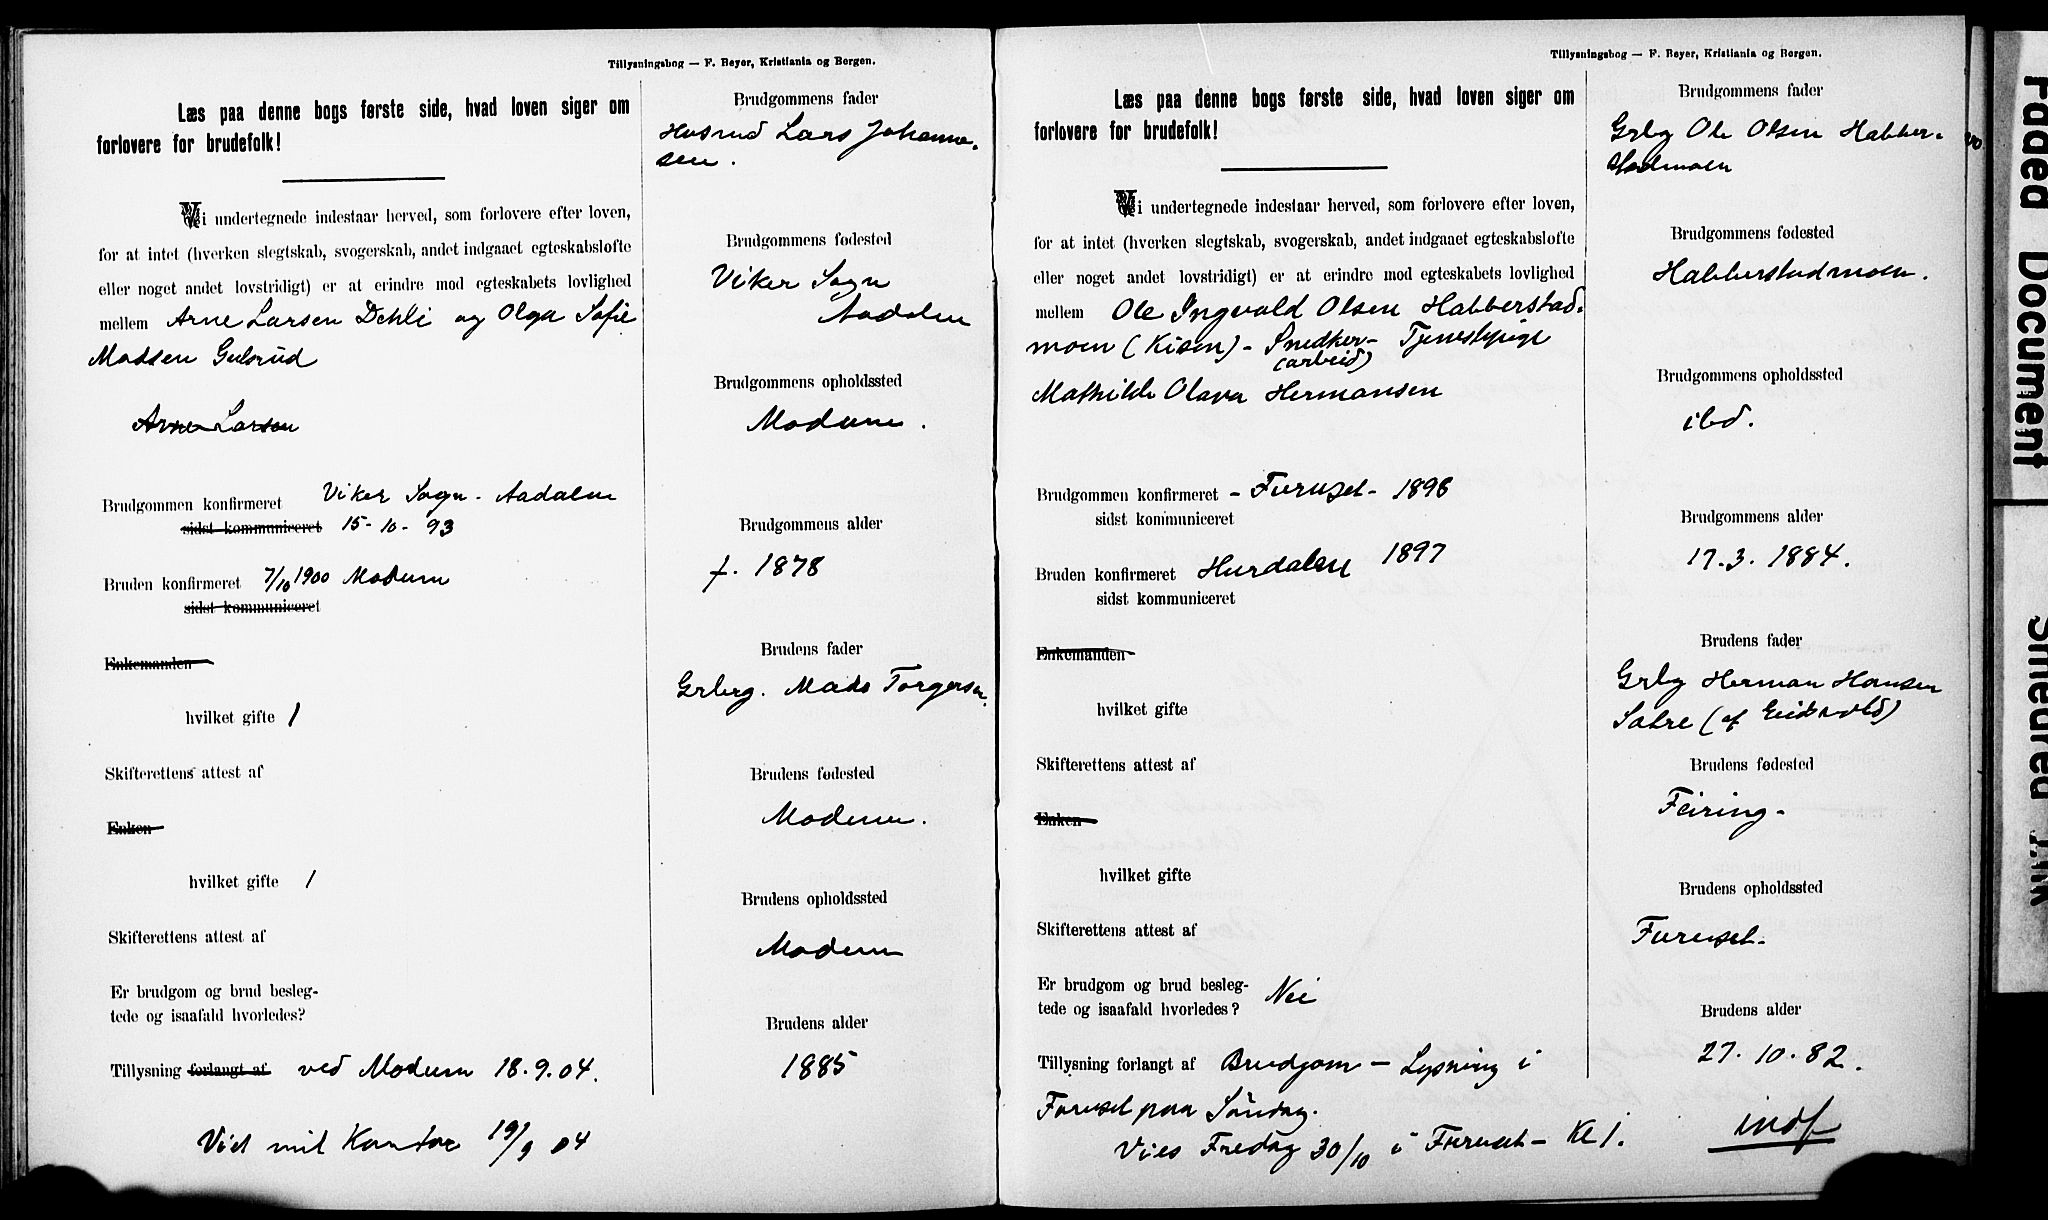 Tillysningsbog — F. Beyer, Kristiania og Bergen.
Læs paa denne bogs første side, hvad loven siger om
forlovere for brudefolk!
Vi undertegnede indestaar herved, som forlovere efter loven,
for at intet (hverken slegtskab, svogerskab, andet indgaaet egteskabsløfte
eller noget andet lovstridigt) er at erindre mod egteskabets lovlighed
mellem Arne Larsen Dehli og Olga Sofie
Madsen Gulsrud
Arne Larsen
Brudgommen konfirmeret Viker Sogn - Aadalen
sidst kommuniceret 15-10-93
Bruden konfirmeret 7/10 1900 Modum
sidst kommuniceret
Enkemanden
hvilket gifte 1
Skifterettens attest af
Enken
hvilket gifte 1
Skifterettens attest af
Er brudgom og brud besleg-
tede og isaafald hvorledes?
Tillysning forlangt af ved Modum 18.9.04.
Viet mit Kontor 19/9 04
Brudgommens fader
Husmd Lars Johanne-
sen.
Brudgommens fødested
Viker Sogn
Aadalen
Brudgommens opholdssted
Modum.
Brudgommens alder
f. 1878
Brudens fader
Grbrg. Mads Torgersen.
Brudens fødested
Modum.
Brudens opholdssted
Modum
Brudens alder
1885
Tillysningsbog — F. Beyer, Kristiania og Bergen.
Læs paa denne bogs første side, hvad loven siger om
forlovere for brudefolk!
Vi undertegnede indestaar herved, som forlovere efter loven,
for at intet (hverken slegtskab, svogerskab, andet indgaaet egteskabsløfte
eller noget andet lovstridigt) er at erindre mod egteskabets lovlighed
mellem Ole Ingvald Olsen Habberstad-
moen (Kisen) - Snedker- Tjenestepige
(arbeid)
Mathilde Olava Hermansen
Brudgommen konfirmeret - Furuset - 1898
sidst kommuniceret
Bruden konfirmeret Hurdalen 1897
sidst kommuniceret
Enkemanden
hvilket gifte
Skifterettens attest af
Enken
hvilket gifte
Skifterettens attest af
Er brudgom og brud besleg-
tede og isaafald hvorledes? Nei
Tillysning forlangt af Brudgom — Lysning i
Furuset paa Søndag.
Vies Fredag 30/10 i Furuset - Kl 1.
Brudgommens fader
Grbg Ole Olsen Habber-
stadmoen
Brudgommens fødested
Habberstadmoen.
Brudgommens opholdssted
ibd.
Brudgommens alder
17.3.1884.
Brudens fader
Grbg Herman Hansen
Sætre (af Eidsvold)
Brudens fødested
Feiring-
Brudens opholdssted
Furuset-
Brudens alder
27.10.82.
indf
Faded Document
Smeared Ink